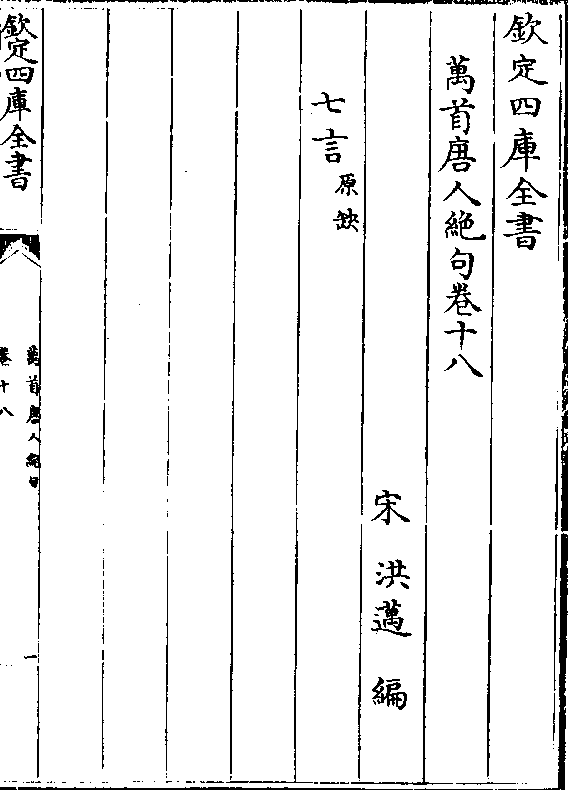 欽定四庫全書
萬首唐人絶句卷十八
宋洪邁編
七言原缺
欽定四庫全書
萬首唐人絶句
卷十八
一